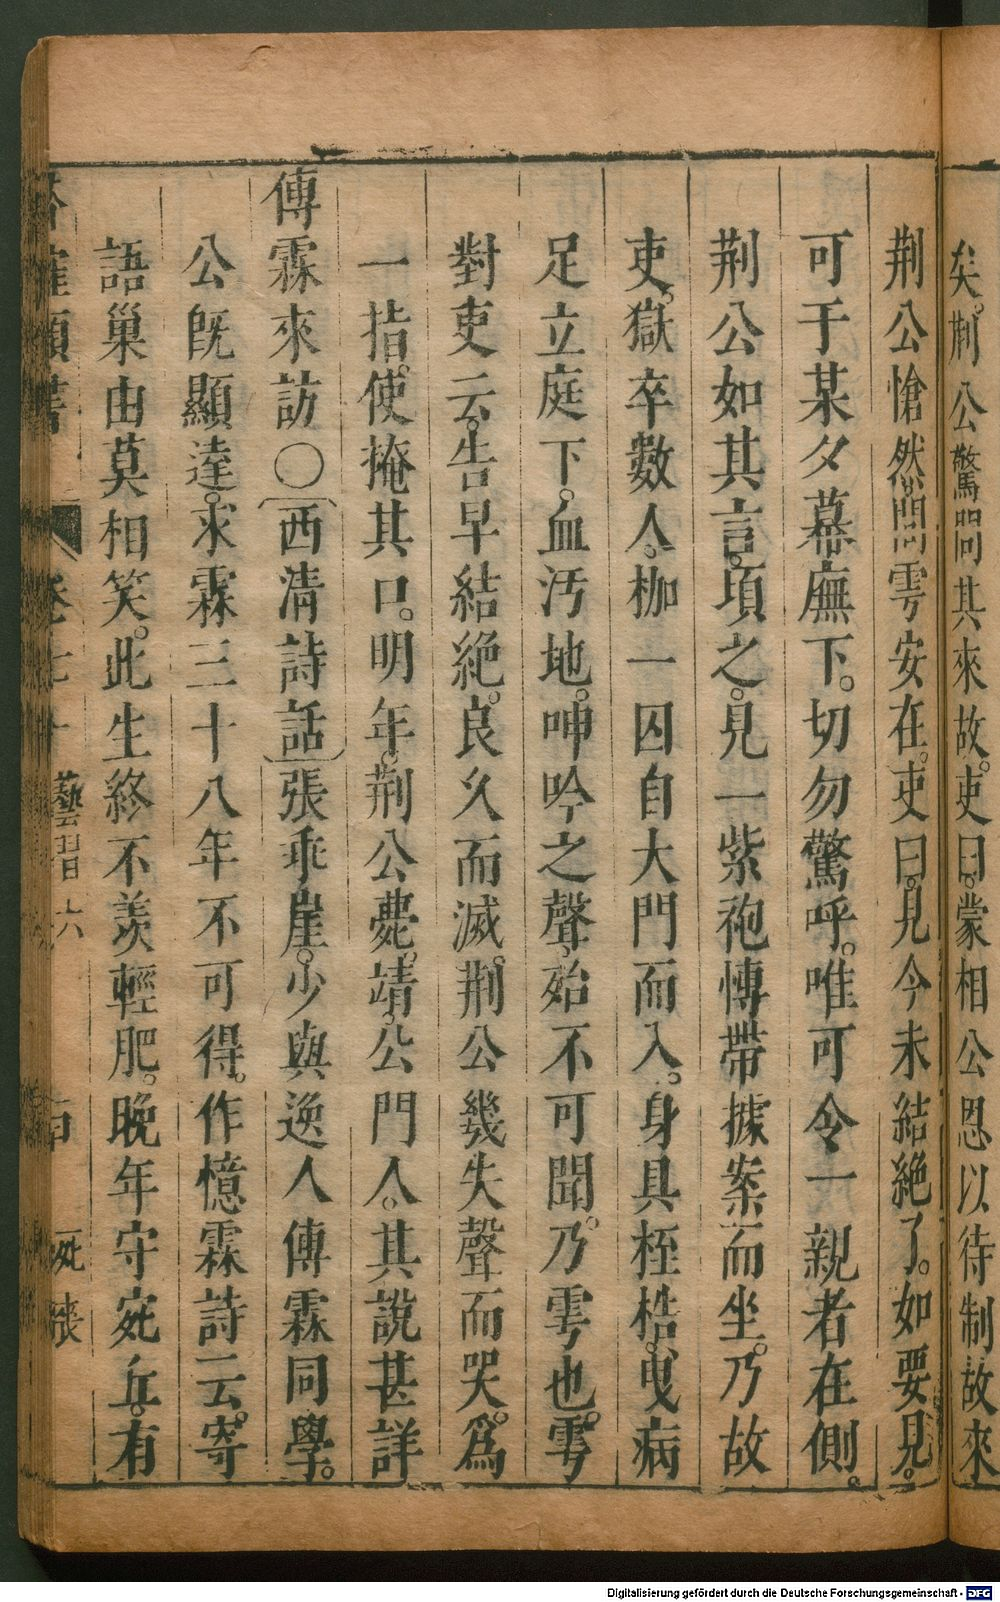 矣。荆公驚問其來故。吏曰。蒙相公恩以待制故來
荆公愴然問雱安在。吏曰。見今未結絶了。如要見。
可于某夕幕廡下。切勿驚呼。唯可令一親者在側。
荆公如其言。頃之。見一紫袍慱帶據案而坐。乃故
吏。獄卒數人。枷一囚自大門而入。身具桎梏。曳病
足立庭下。血汚地。呻吟之聲。殆不可聞。乃雱也。雱
對吏云。告早結絶。良久而滅。荆公幾失聲而哭。爲
一指。使掩其口。明年。荆公薨。靖公門人。其說甚詳
傅霖來訪〇〔西清詩話〕張乖崖。少與逸人傅霖同學。
公旣顯達。求霖三十八年不可得。作憶霖詩云。寄
語巢由莫相笑。此生終不羨輕肥。晚年守宛丘。有
藝習六
Digitalisierung gefördert durch die Deutsche Forschungsgemeinschaft - DFG